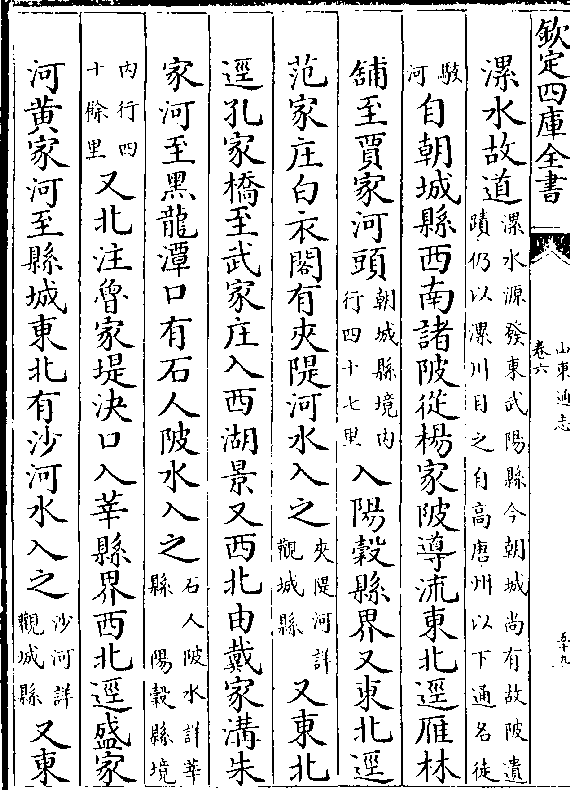 欽定四庫全書
山東通志
卷六
五十九
漯水故道漯水源發東武陽縣今朝城尚有故陂遺蹟仍以漯川目之自高唐州以下通名徒
駭河自朝城縣西南諸陂從楊家陂導流東北逕雁林
舖至賈家河頭朝城縣境内行四十七里入陽穀縣界又東北逕
范家庄白衣閣有夾隄河水入之夾隄河詳觀城縣又東北
逕孔家橋至武家庄入西湖景又西北由戴家溝朱
家河至黑龍潭口有石人陂水入之石人陂水詳莘縣陽穀縣境
内行四十餘里又北注魯家堤決口入莘縣界西北逕盛家
河黄家河至縣城東北有沙河水入之沙河詳觀城縣又東